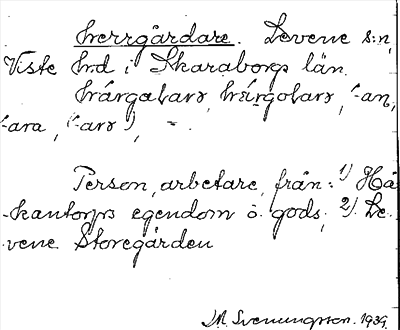 herrgårdare. Levene s:n,
Viste hrd i Skaraborgs län.
hárgaları, hárgoları, (-an,
-ara, (-arı), =.
Person, arbetare, från: 1) Hå
-kantorps egendom o. gods, 2) Le
-vene Storegården
M. Svenungsson. 1939.